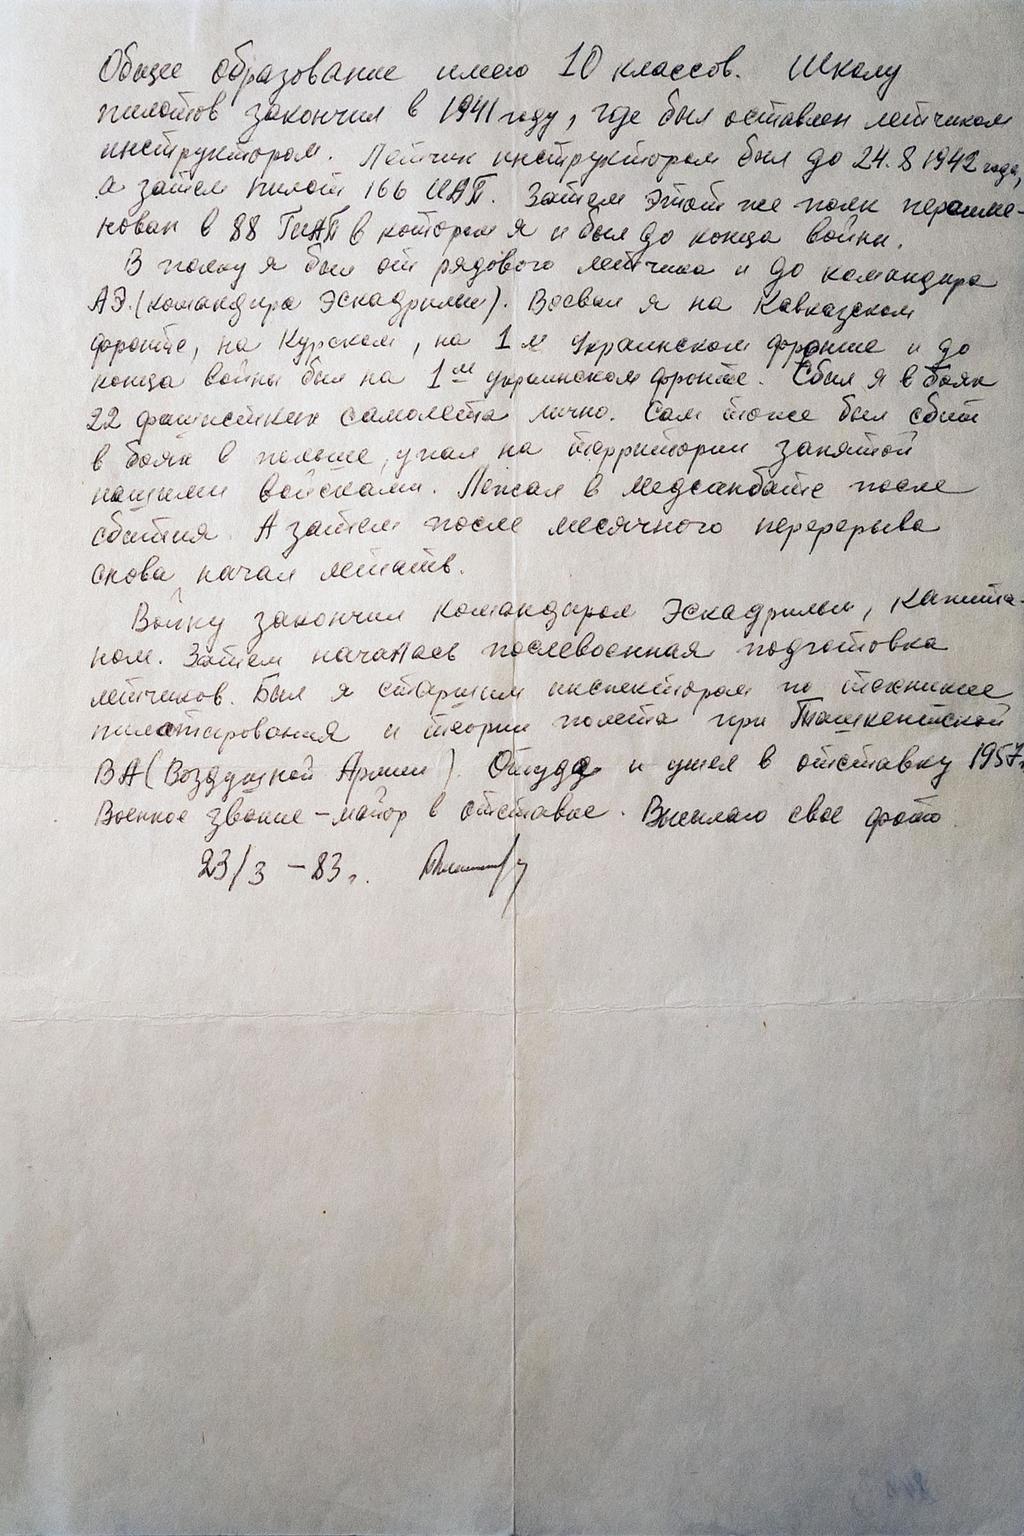 Общее образование имею 10 классов. Школу
пилотов закончил в 1941 году, где был оставлен летчиком
инструктором. Летчик инструктором был до 24.8 1942 года,
а затем пилот 166 ИАП. Затем этот же полк переиме-
нован в 88 ГиАП в котором я и был до конца войны.
В полку я был от рядового летчика и до командира
АЭ.(командира Эскадрильи). Воевал я на Кавказском
фронте, на Курском, на 1м Украинском фронте и до
конца войны был на 1ом украинском фронте. Сбил я в боях
22 фашистких самолета лично. Сам тоже был сбит
в боях в польше, упал на территории занятой
нашими войсками. Лежал в медсанбате после
сбития. А затем после месячного перерерыва
снова начал летать.
Войну закончил командиром Эскадрильи, капита-
ном. Затем началась послевоенная подготовка
летчиков. Был я старшим инспектором по технике
пилотирования и теории полета при Ташкентской
ВА (Воздушной Армии). Откуда и ушел в отставку 1957г.
Военное звание – майор в отставке. Высылаю свое фото.
23/3 – 83г.